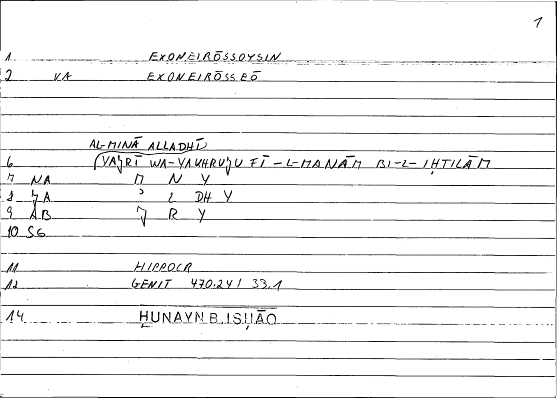 1
1 EXONEIRŌSSOYSIN
2 VA EXONEIRŌSSEŌ
AL-MINĀ ALLADHĪ
6 (YAǦRĪ WA-YAKHRUǦU FĪ-L-MANĀM BI-L-IḤTILĀM
7 NA M N Y
8 ǦA ʾ L DH Y
9 AB Ǧ R Y
10 SG
11 HIPPOCR
12 GENIT 470.24/ 33.1
14 ḤUNAYN B. ISḤĀQ